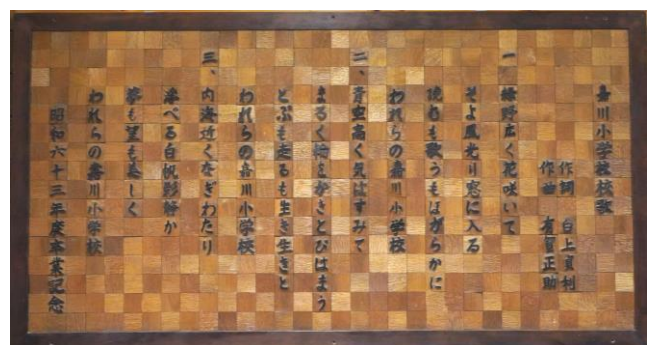 嘉川小学校校歌
作詞 白上貞利
作曲 有賀正助
一、緑野広く花咲いて
そよ風光り窓に入る
読むも歌うもほがらかに
われらの嘉川小学校
二、青空高く気はすみて
まるく輪をかきとびはまう
とぶも走るも生き生きと
われらの嘉川小学校
三、内海近くなぎわたり
浮べる白帆影静か
夢も望も美しく
われらの嘉川小学校
昭和六十三年度卒業記念